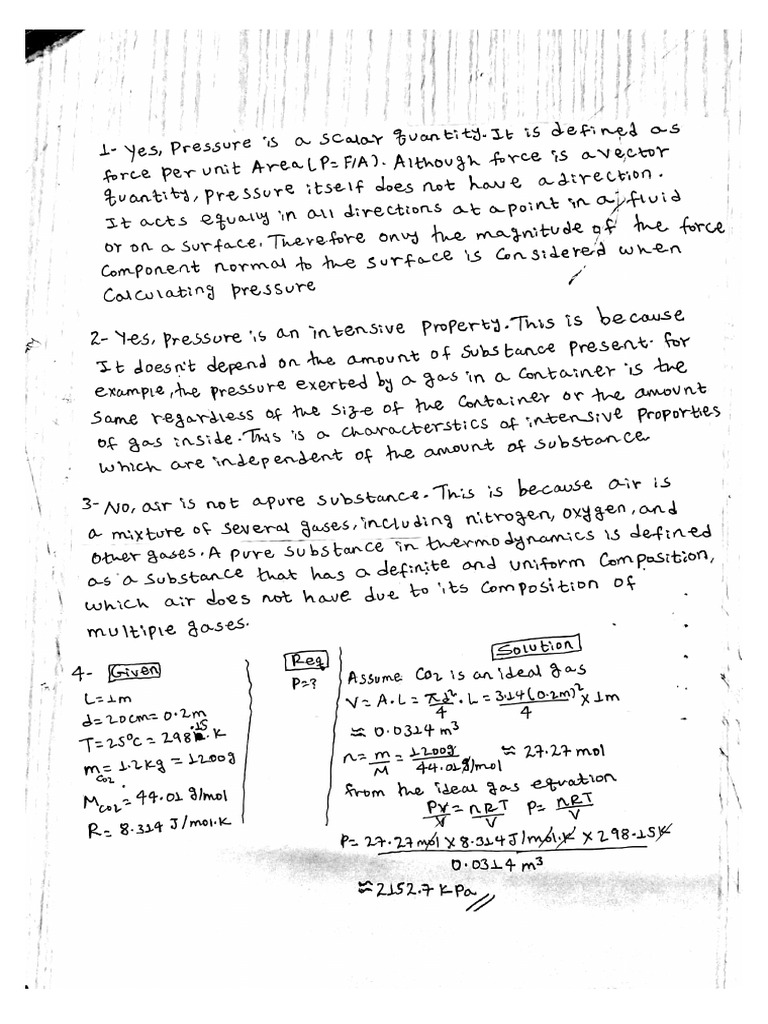 1- Yes, Pressure is a scalar quantity. It is defined as
force per unit Area (P= F/A). Although force is a vector
quantity, pressure itself does not have a direction.
It acts equally in all directions at a point in a fluid
or on a surface. Therefore only the magnitude of the force
component normal to the surface is considered when
calculating pressure
2- Yes, pressure is an intensive property. This is because
It doesn't depend on the amount of substance present. for
example, the pressure exerted by a gas in a container is the
same regardless of the size of the container or the amount
of gas inside. This is a characterstics of intensive Proporties
which are independent of the amount of substance
3- No, air is not a pure substance. This is because air is
a mixture of several gases, including nitrogen, oxygen, and
other gases. A pure substance in thermodynamics is defined
as a substance that has a definite and uniform composition,
which air does not have due to its composition of
multiple gases.
4- Given
L=1m
d=20cm=0.2m
T=25°C=298.15K
m CO2=1.2kg=1200g
M CO2=44.01 g/mol
R= 8.314 J/mol.K
Req
P=?
Solution
Assume CO2 is an ideal gas
V= A.L = πd²/4 .L = 3.14(0.2m)²/4 x 1m
≈ 0.0314 m³
n= m/M = 1200g/44.01g/mol ≈ 27.27 mol
from the ideal gas equation
PV/V = nRT/V P= nRT/V
P= 27.27mol x 8.314J/mol.K x 298.15K
0.0314 m³
≈2152.7 KPa